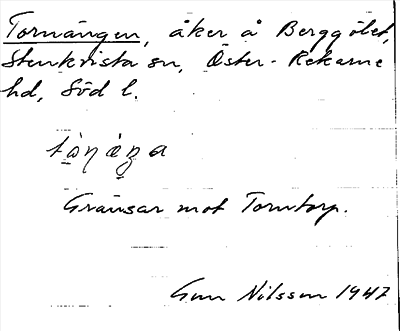 Tornängen, åker å Berggölet,
Stenkvista sn, Öster-Rekarne
hd, Södl.
Gränsar mot Torntorp.
Gun Nilsson 1947